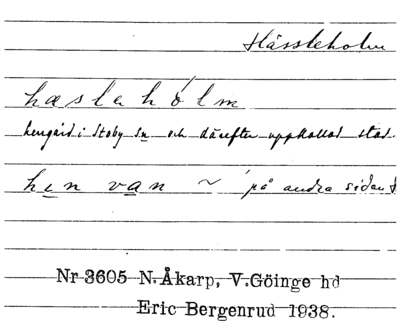 Hässleholm
hæslahólm
herrgård i Stoby sn och därefter uppkallad stad.
hen van ~ på andra sidan
Nr 3605 N. Åkarp, V. Göinge hd
Eric Bergenrud 1938.